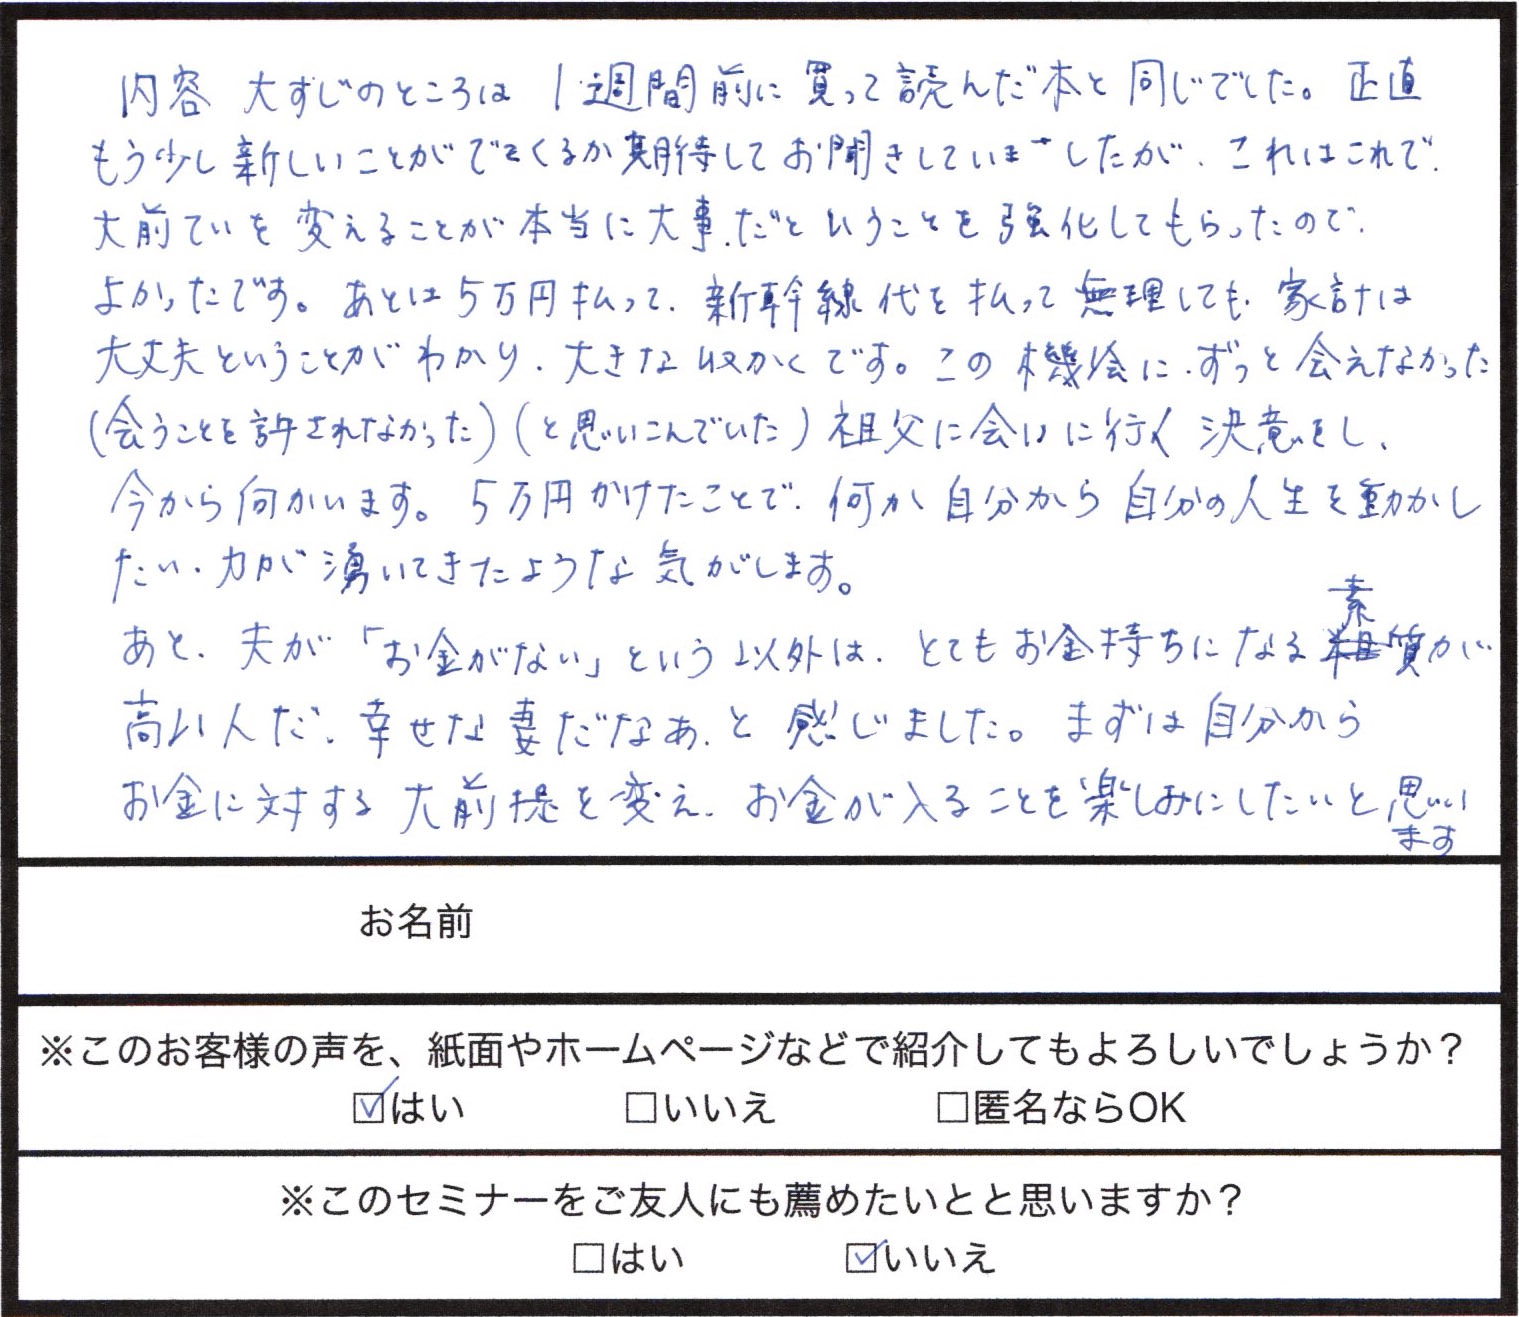 内容 大すじのところは 1週間前に買って読んだ本と同じでした。正直
もう少し新しいことがでてくるか期待してお聞きしていましたが、これはこれで、
大前ていを変えることが本当に大事だということを強化してもらったので、
よかったです。あとは5万円払って、新幹線代を払って無理しても、家計は
大丈夫ということがわかり、大きな収かくです。この機会に、ずっと会えなかった
(会うことを許されなかった)(と思いこんでいた)祖父に会いに行く決意をし、
今から向かいます。5万円かけたことで、何か自分から自分の人生を動かし
たい、力が湧いてきたような気がします。
あと、夫が「お金がない」という以外は、とてもお金持ちになる素質が
高い人だ、幸せな妻だなぁ、と感じました。まずは自分から
お金に対する大前提を変え、お金が入ることを楽しみにしたいと思い
ます
お名前
※このお客様の声を、紙面やホームページなどで紹介してもよろしいでしょうか？
☑はい □いいえ □匿名ならOK
※このセミナーをご友人にも薦めたいとと思いますか？
□はい ☑いいえ